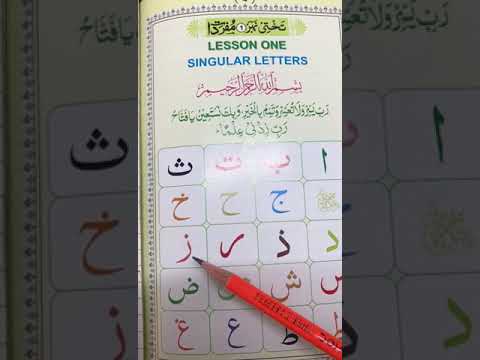 تختی نمبر 1 مفردات
LESSON ONE
SINGULAR LETTERS
بِسْمِ اللهِ الرَّحْمٰنِ الرَّحِيْمِ
رَبِّ يَسِّرْ وَلَا تُعَسِّرْ وَتَمِّمْ بِالْخَيْرِ وَبِكَ نَسْتَعِيْنُ يَا فَتَّاحُ
رَبِّ زِدْنِيْ عِلْمًا
ا ب ت ث
ج ح خ
د ذ ر ز
س ش ض
ط ظ ع غ